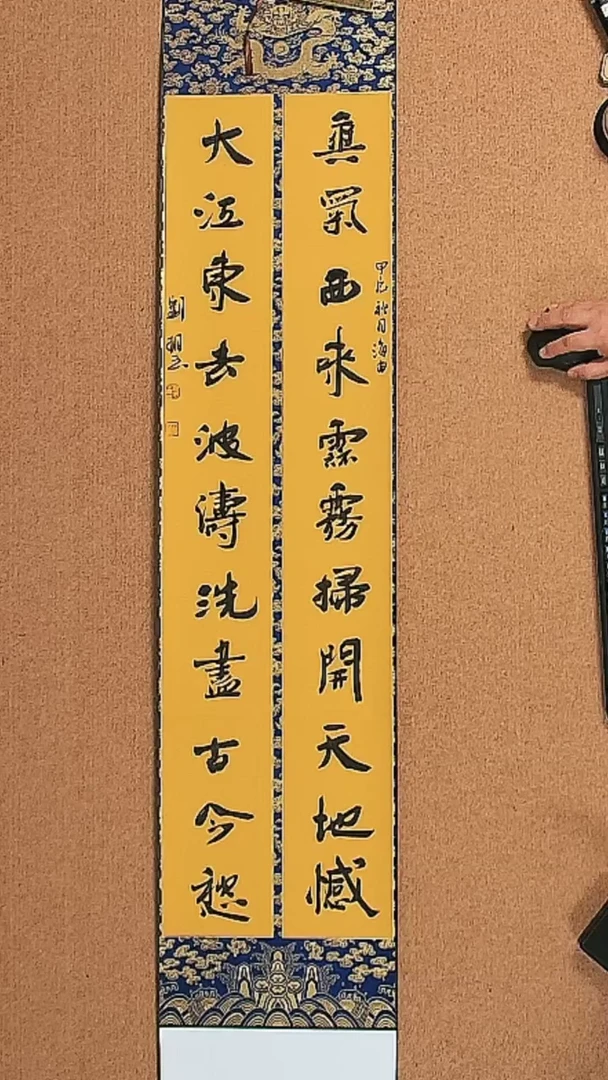 眞氣西來雲霧掃開天地憾
甲辰秋月海
大江東去波濤洗盡古今愁
劉